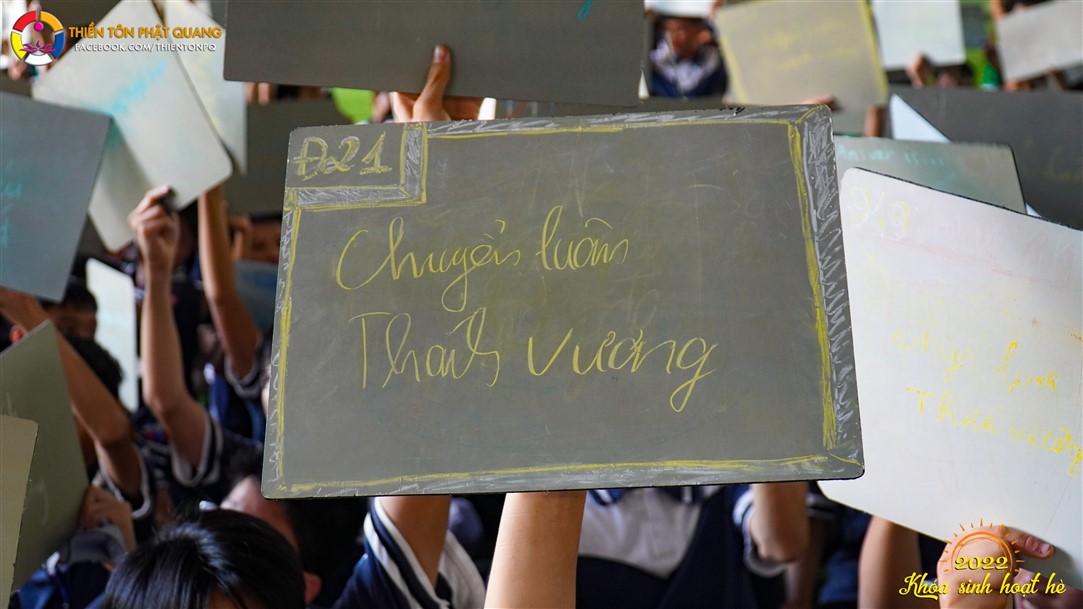 THIỀN TÔN PHẬT QUANG
FACEBOOK.COM/THIENTONPQ
Đ21
Chuyển luân
Thánh Vương
2022
Khóa sinh hoạt hè